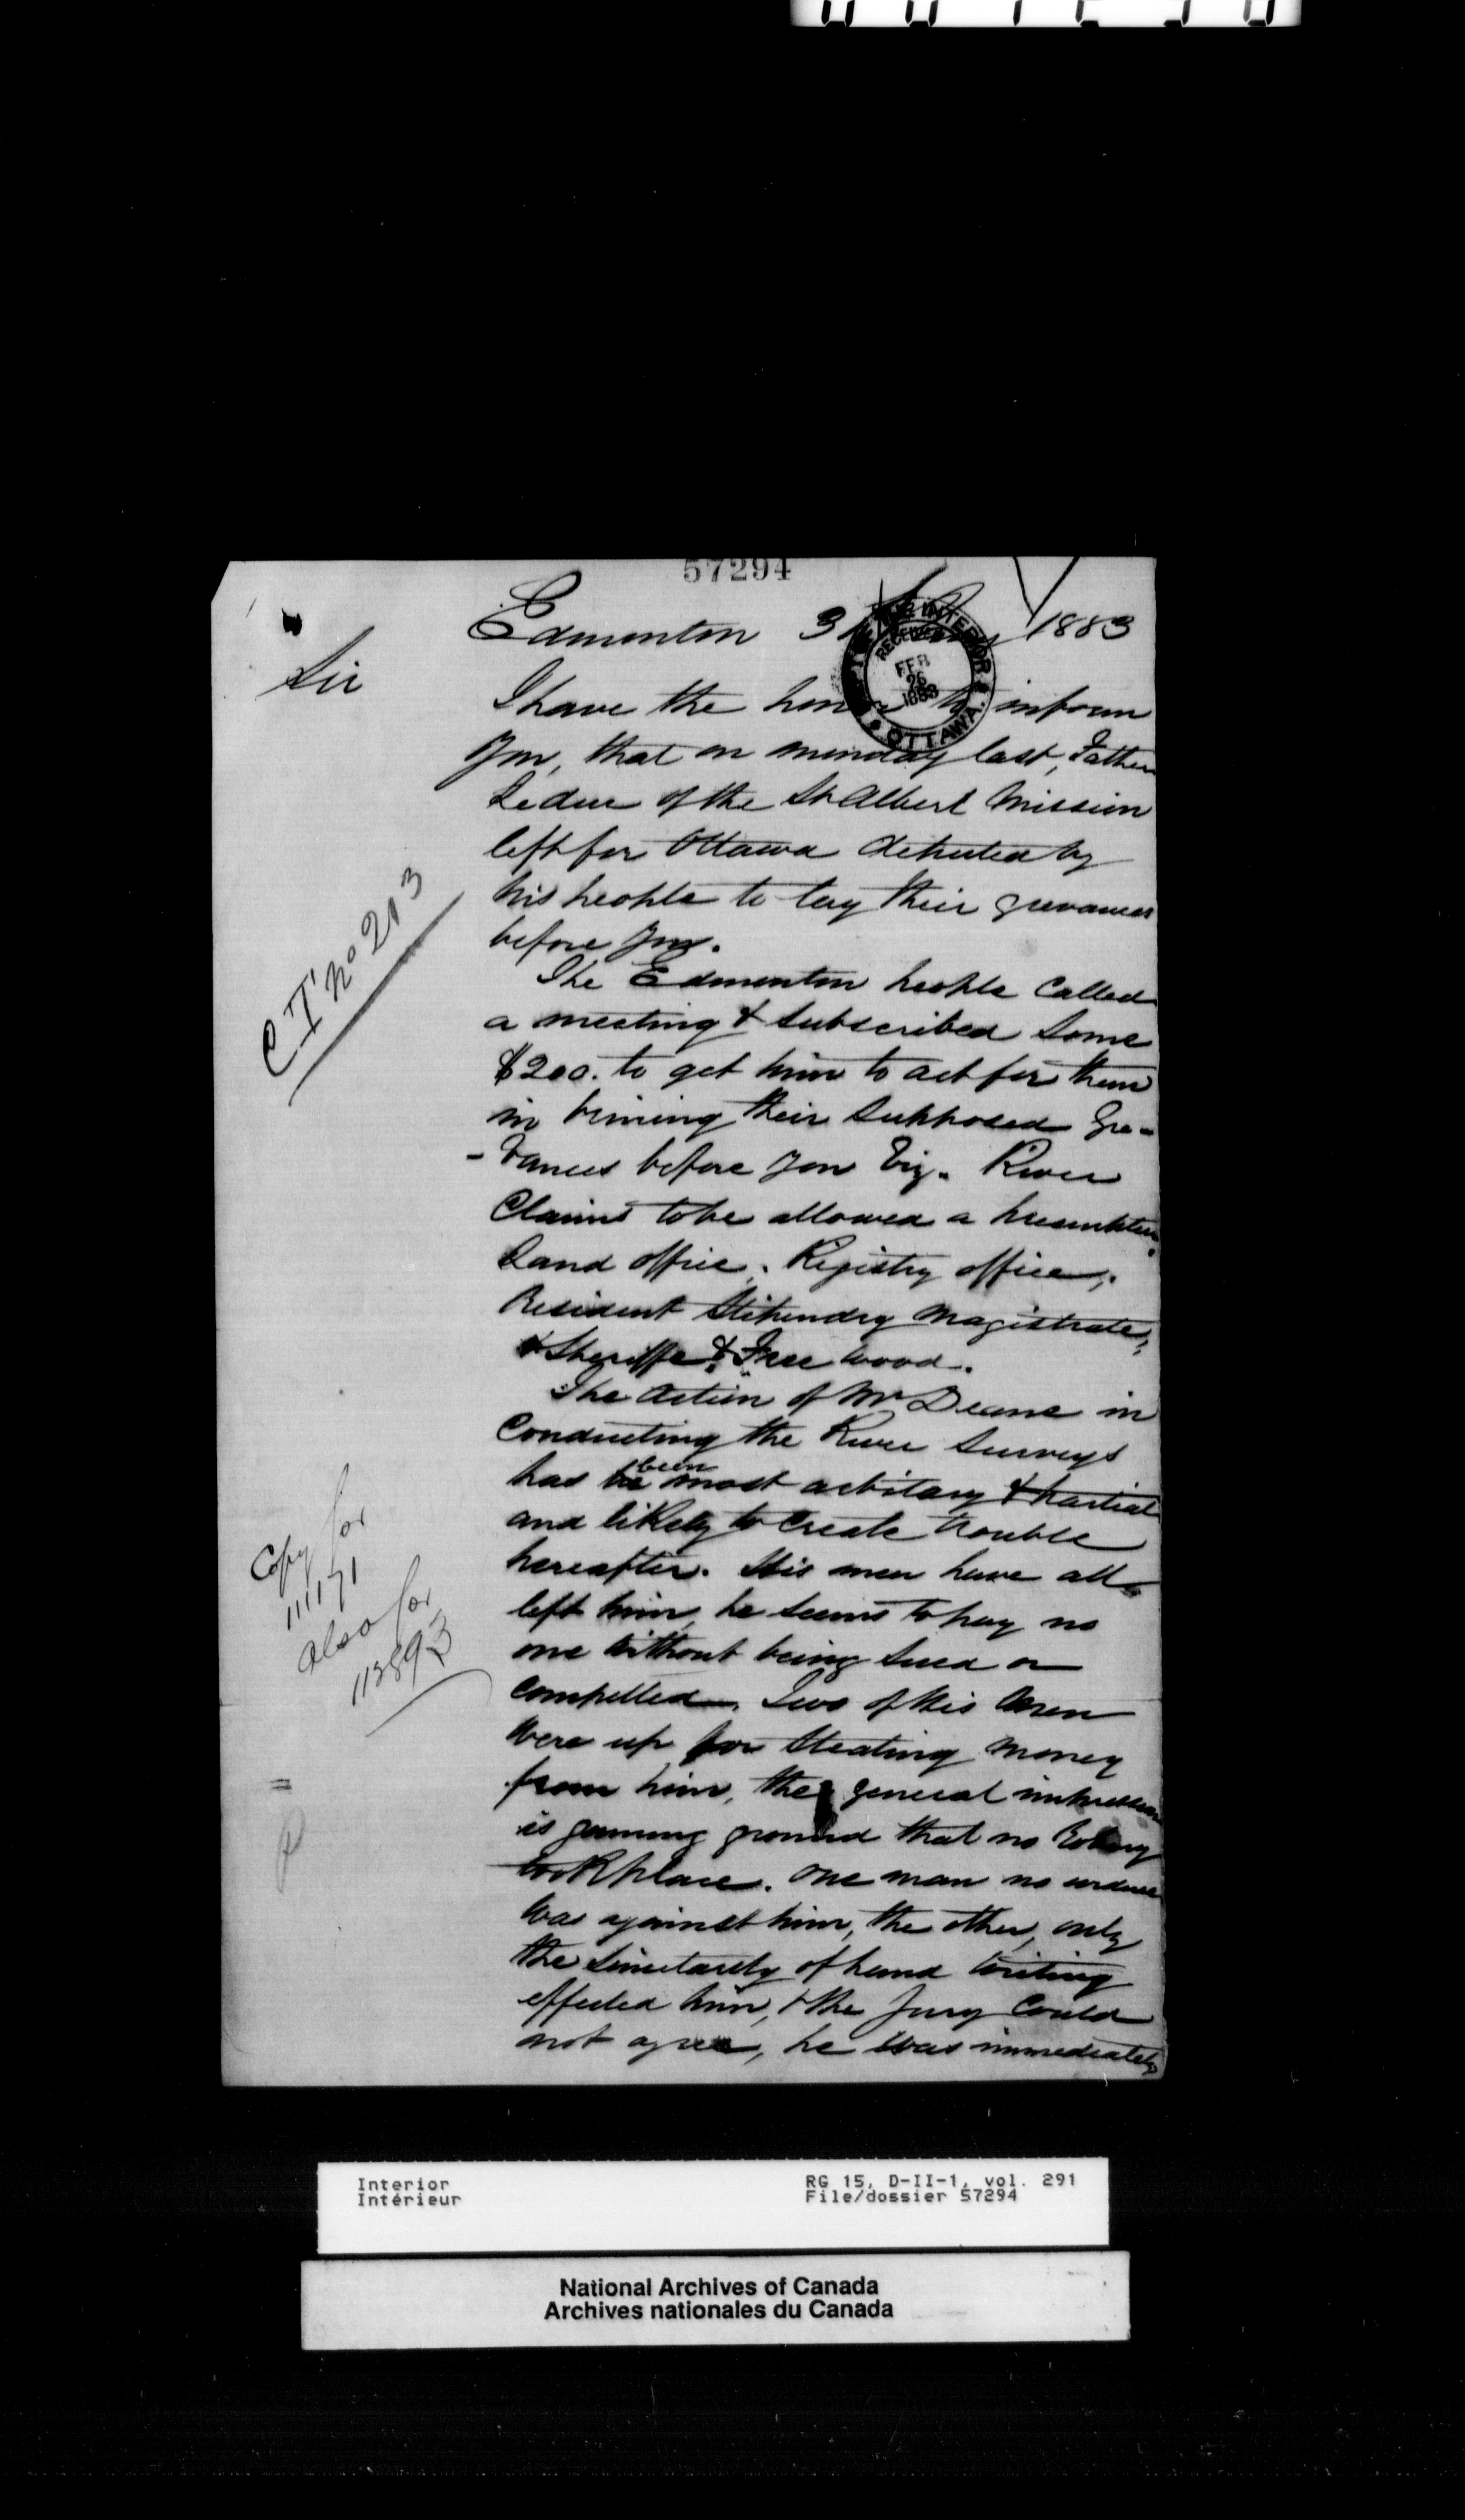 57294
Edmonton 3 1883
DEPT INTERIOR
RECEIVED
FEB
26
1883
OTTAWA.
Sir
I have the honor to inform
you, that on monday last, Father
Leduc of the St Albert Mission
left for Ottawa deputed by
his people to lay their greevances
before you.
C T' no 213
The Edmonton people called
a meeting & subscribed some
$200. to get him to act for them
in brining their supposed Gre-
-vances before you Viz. River
Claims to be allowed a preemption
Land office. Registry office,
Resident Stipendry Magistrate,
& Sheriffe & Free wood.
The action of Mr Deane in
Conducting the River Surveys
has been most arbitary & partial
and likely to create trouble
hereafter. His men have all
left him, he seems to pay no
one without being sued or
compelled. Two of his men
were up for stealing money
from him, the general impression
is gaining ground that no Robery
took place. One man no evidence
was against him, the other, only
the simularity of hand writing
effected him, & the Jury could
not agree, he was immediately
Copy for
111171
also for
113893
Interior
Intérieur
RG 15, D-II-1, vol. 291
File/dossier 57294
National Archives of Canada
Archives nationales du Canada